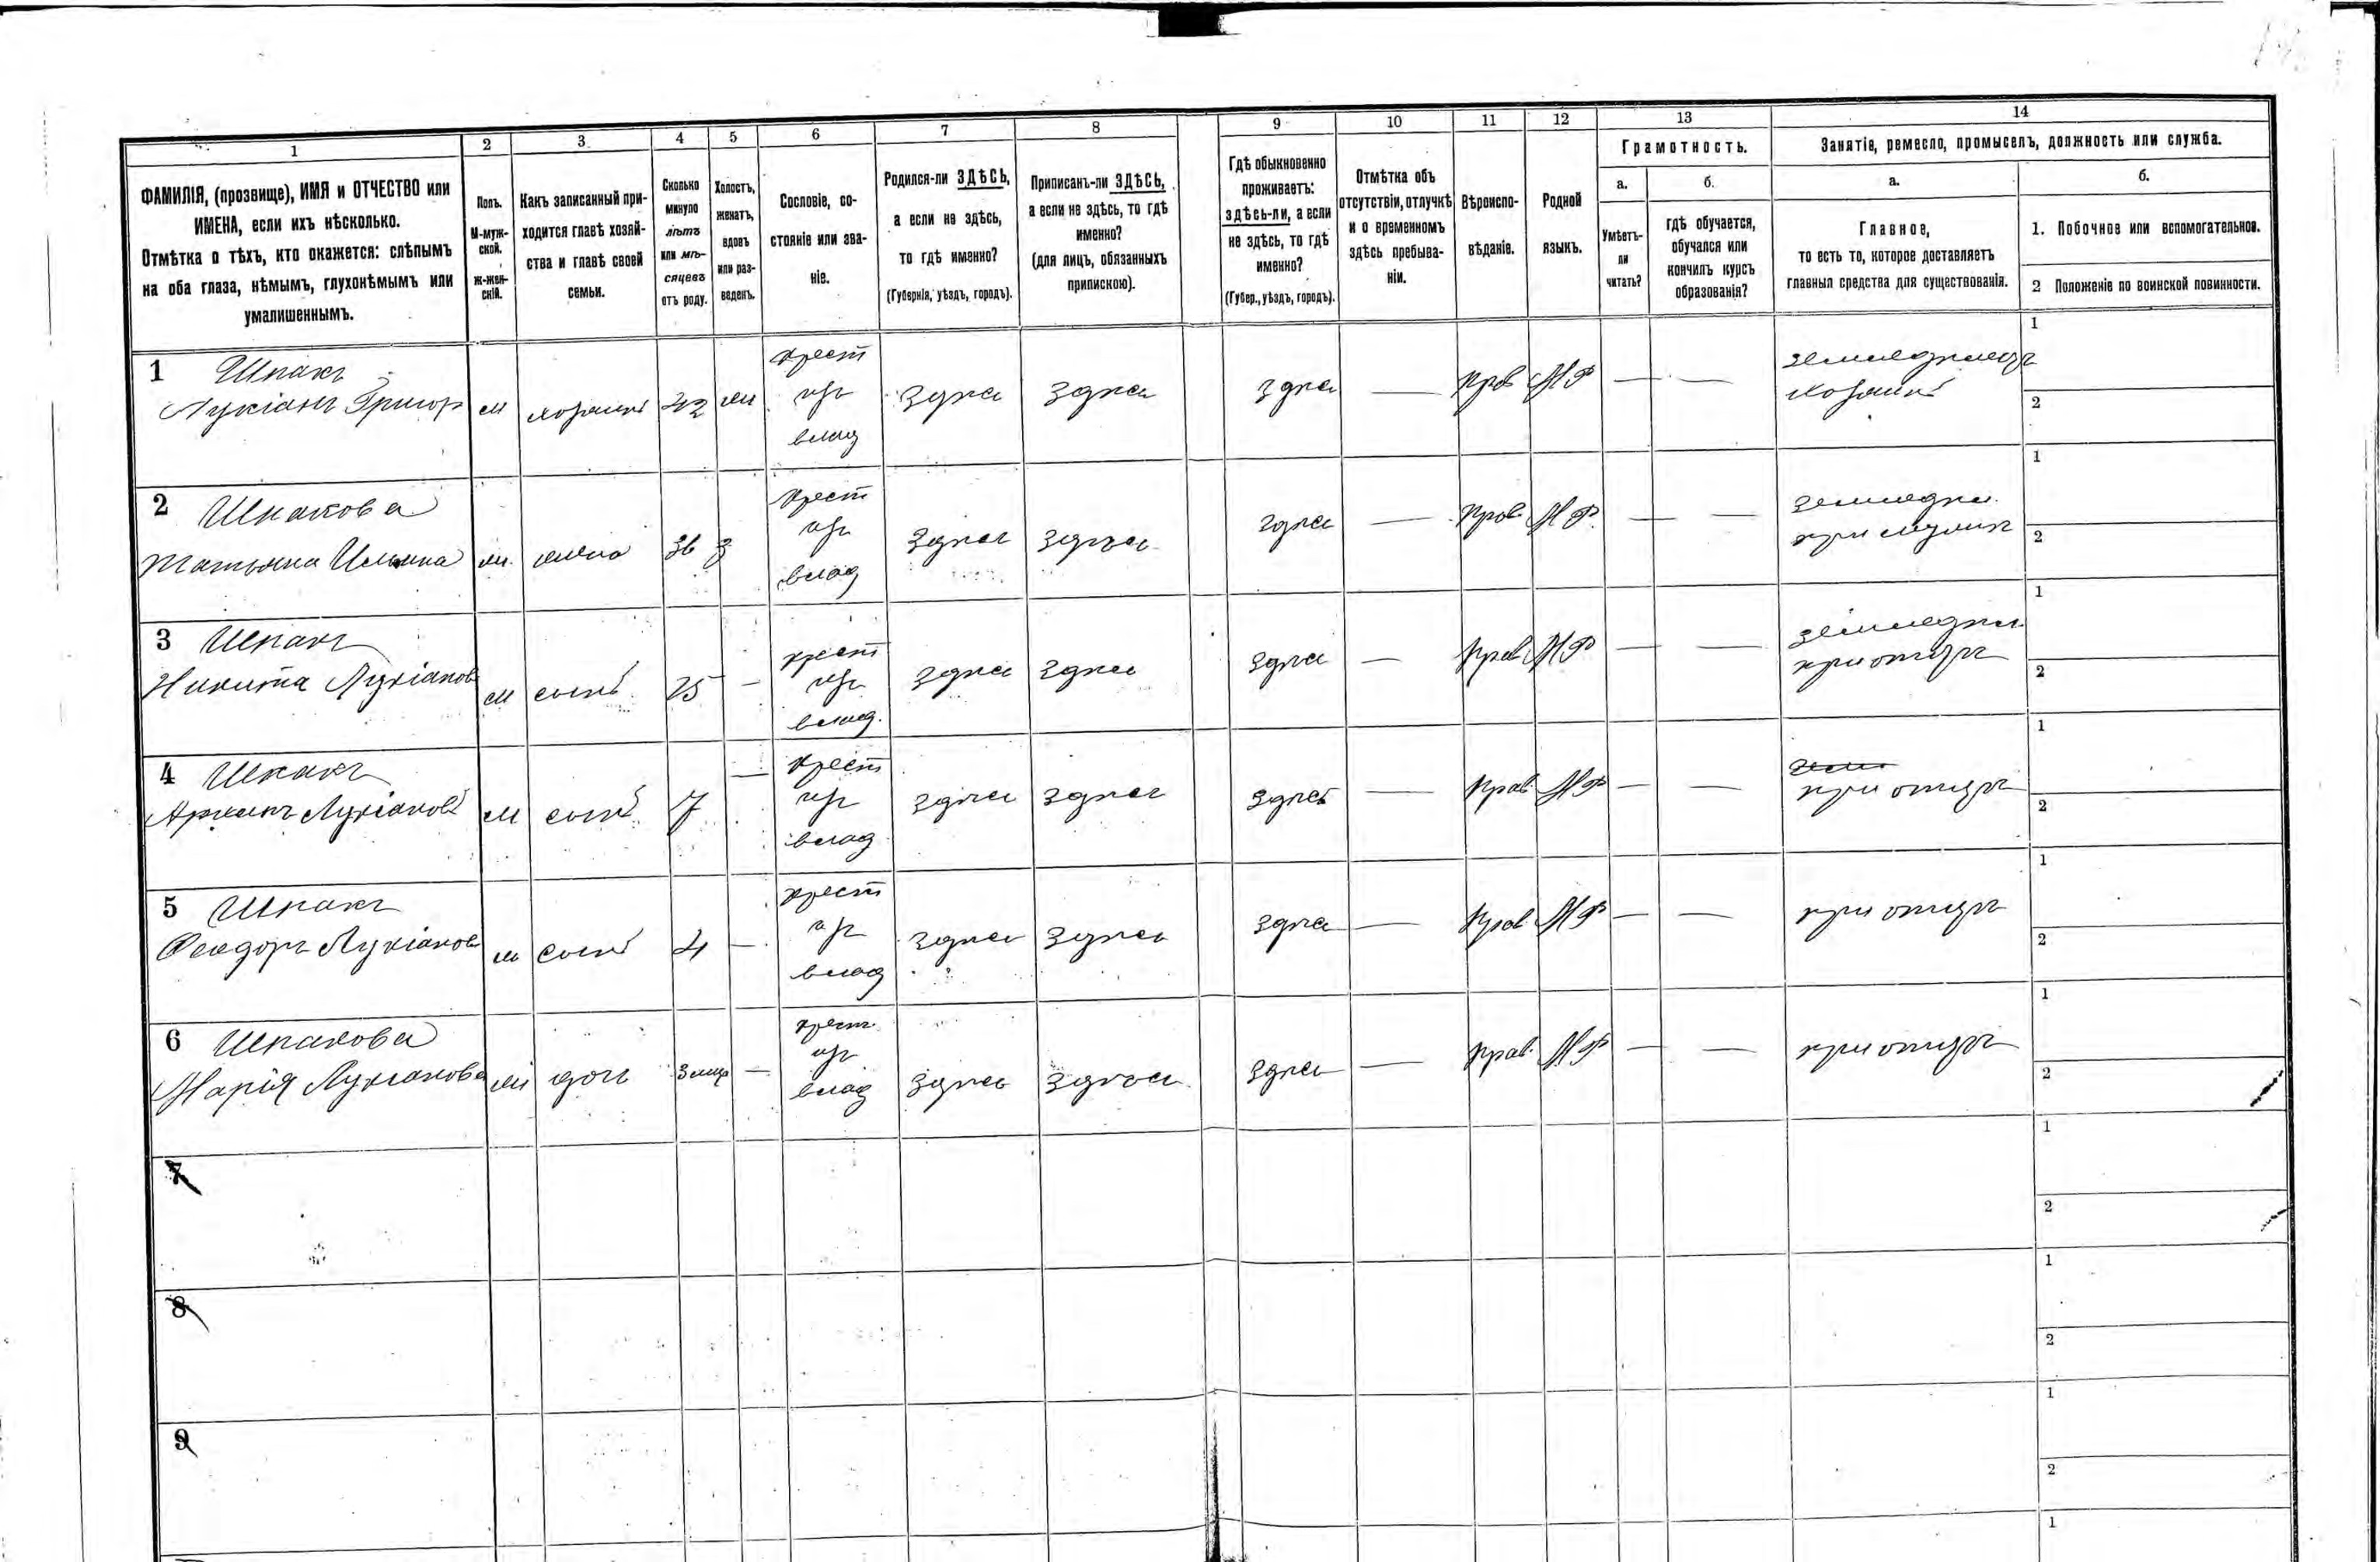 1 2 3 4 5 6 7 8 9 10 11 12 13 14
ФАМИЛІЯ, (прозвище), ИМЯ и ОТЧЕСТВО или
ИМЕНА, если ихъ нѣсколько.
Отмѣтка о тѣхъ, кто окажется: слѣпымъ
на оба глаза, нѣмымъ, глухонѣмымъ или
умалишеннымъ.
Полъ.
М-муж-
ской.
ж-жен-
скій.
Какъ записанный при-
ходится главѣ хозяй-
ства и главѣ своей
семьи.
Сколько
минуло
лѣтъ
или мѣ-
сяцевъ
отъ роду.
Холостъ,
женатъ,
вдовъ
или раз-
веденъ.
Сословіе, со-
стояніе или зва-
ніе.
Родился-ли ЗДѢСЬ,
а если не здѣсь,
то гдѣ именно?
(Губернія, уѣздъ, городъ).
Приписанъ-ли ЗДѢСЬ,
а если не здѣсь, то гдѣ
именно?
(для лицъ, обязанныхъ
припискою).
Гдѣ обыкновенно
проживаетъ:
здѣсь-ли, а если
не здѣсь, то гдѣ
именно?
(Губер., уѣздъ, городъ).
Отмѣтка объ
отсутствіи, отлучкѣ
и о временномъ
здѣсь пребыва-
ніи.
Вѣроиспо-
вѣданіе.
Родной
языкъ.
Грамотность.
а.
Умѣетъ-
ли
читать?
б.
гдѣ обучается,
обучался или
кончилъ курсъ
образованія?
Занятіе, ремесло, промыселъ, должность или служба.
а.
Главное,
то есть то, которое доставляетъ
главныя средства для существованія.
б.
1. Побочное или вспомогательное.
2 Положеніе по воинской повинности.
1 Шпакъ крест 1
Лукіанъ Григор м хозяинъ 42 здѣсь здѣсь здѣсь — Прав МР — — хозяинъ 2
влад
2 Шпакова крест 1
Татьяна Ильина жена 36 здѣсь здѣсь здѣсь — Прав МР — — при мужѣ 2
влад
3 Шпакъ крест 1
Никита Лукіановъ м сынъ — здѣсь здѣсь здѣсь — Прав МР — — при отцѣ 2
влад.
4 Шпакъ — крест 1
Лукіановъ м сынъ 7 здѣсь здѣсь здѣсь — Прав МР — — при отцѣ 2
влад
5 Шпакъ крест 1
Феодоръ Лукіановъ м сынъ 4 — здѣсь здѣсь здѣсь — Прав МР — — при отцѣ 2
влад
6 Шпакова крест 1
Марія Лукіанова доч — здѣсь здѣсь здѣсь — Прав МР — — при отцѣ 2
влад
7 1
2
8 1
2
9 1
2
1